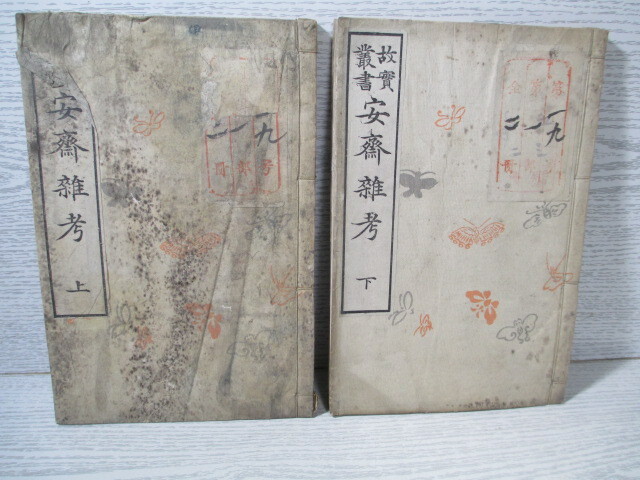 安齋雜考
上
故實
叢書
安齋雜考
下
一九
一
二
冊
号
一九
一
二
冊